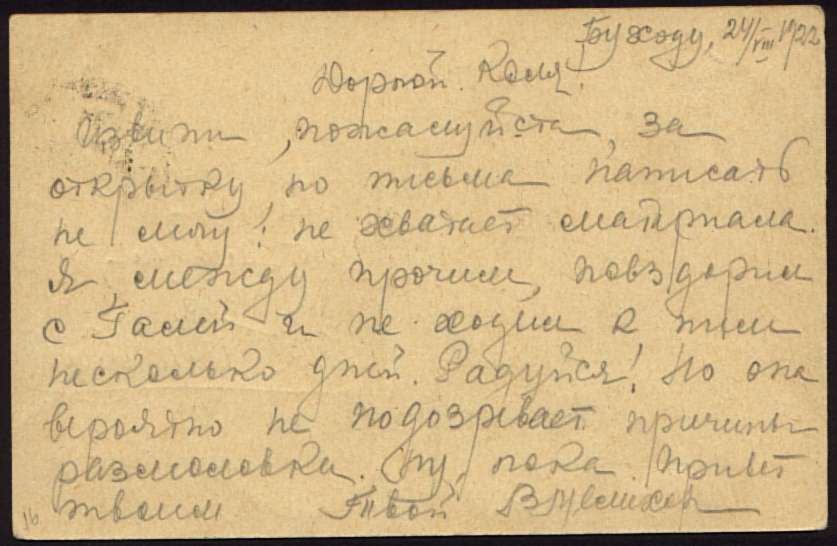 24/VIII 1922
Дорогой Коля.
Извини, пожалуйста, за
открытку, но письма написать
не могу! не хватает материала.
Я, между прочим, повздорил
с Галей и не ходил к ним
несколько дней. Радуйся! Но она
вероятно не подозревает причины
размолвки. Ну, пока привет
твоим Твой
16